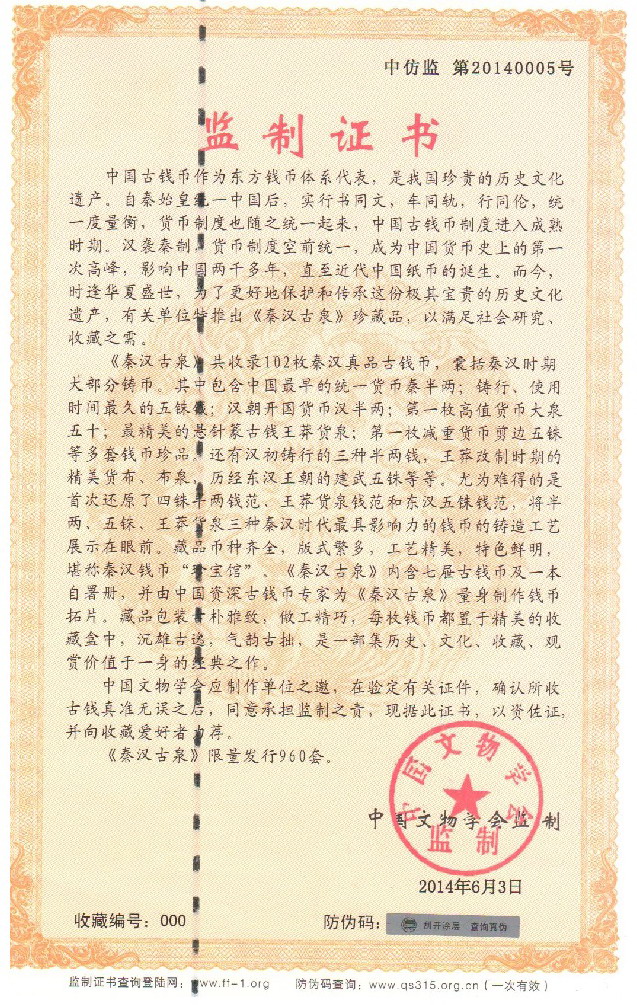 中仿监 第20140005号
监制证书
中国古钱币作为东方钱币体系代表，是我国珍贵的历史文化
遗产。自秦始皇统一中国后，实行书同文，车同轨，行同伦，统
一度量衡，货币制度也随之统一起来，中国古钱币制度进入成熟
时期。汉袭秦制，货币制度空前统一，成为中国货币史上的第一
次高峰，影响中国两千多年，直至近代中国纸币的诞生。而今，
时逢华夏盛世，为了更好地保护和传承这份极其宝贵的历史文化
遗产，有关单位特推出《秦汉古泉》珍藏品，以满足社会研究、
收藏之需。
《秦汉古泉》共收录102枚秦汉真品古钱币，囊括秦汉时期
大部分铸币。其中包含中国最早的统一货币秦半两；铸行、使用
时间最久的五铢钱；汉朝开国货币汉半两；第一枚高值货币大泉
五十；最精美的悬针篆古钱王莽货泉；第一枚减重货币剪边五铢
等多套钱币珍品。还有汉初铸行的三种半两钱，王莽改制时期的
精美货布、布泉，历经东汉王朝的建武五铢等等。尤为难得的是
首次还原了四铢半两钱范、王莽货泉钱范和东汉五铢钱范，将半
两、五铢、王莽货泉三种秦汉时代最具影响力的钱币的铸造工艺
展示在眼前。藏品币种齐全，版式繁多，工艺精美，特色鲜明，
堪称秦汉钱币“珍宝馆”。《秦汉古泉》内含七屉古钱币及一本
自署册，并由中国资深古钱币专家为《秦汉古泉》量身制作钱币
拓片。藏品包装古朴雅致，做工精巧，每枚钱币都置于精美的收
藏盒中，沉雄古逸，气韵古拙，是一部集历史、文化、收藏、观
赏价值于一身的经典之作。
中国文物学会应制作单位之邀，在验定有关证件，确认所收
古钱真准无误之后，同意承担监制之责，现据此证书，以资佐证，
并向收藏爱好者力荐。
《秦汉古泉》限量发行960套。
中国文物学会
监制
中国文物学会监制
2014年6月3日
收藏编号：000
防伪码：
刮开涂层 查询真伪
监制证书查询登陆网：www.ff-1.org 防伪码查询：www.qs315.org.cn（一次有效）